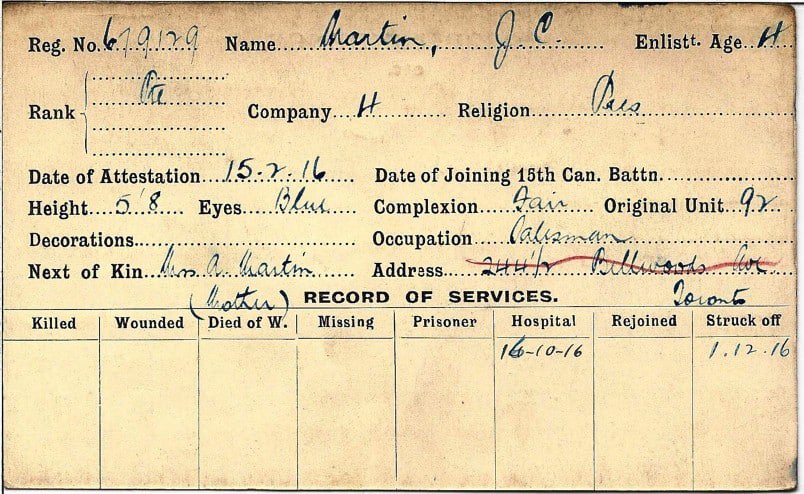 Reg. No. 679129 Name Martin, J. C. Enlistt. Age H
Rank Pte Company H Religion Pres
Date of Attestation 15-2-16 Date of Joining 15th Can. Battn.
Height 5'8 Eyes Blue Complexion Fair Original Unit 92
Decorations Occupation Salesman
Next of Kin Mrs A. Martin Address 244½ Bellwoods Ave
(Mother) RECORD OF SERVICES. Toronto
Killed Wounded Died of W. Missing Prisoner Hospital Rejoined Struck off
16-10-16 1.12.16